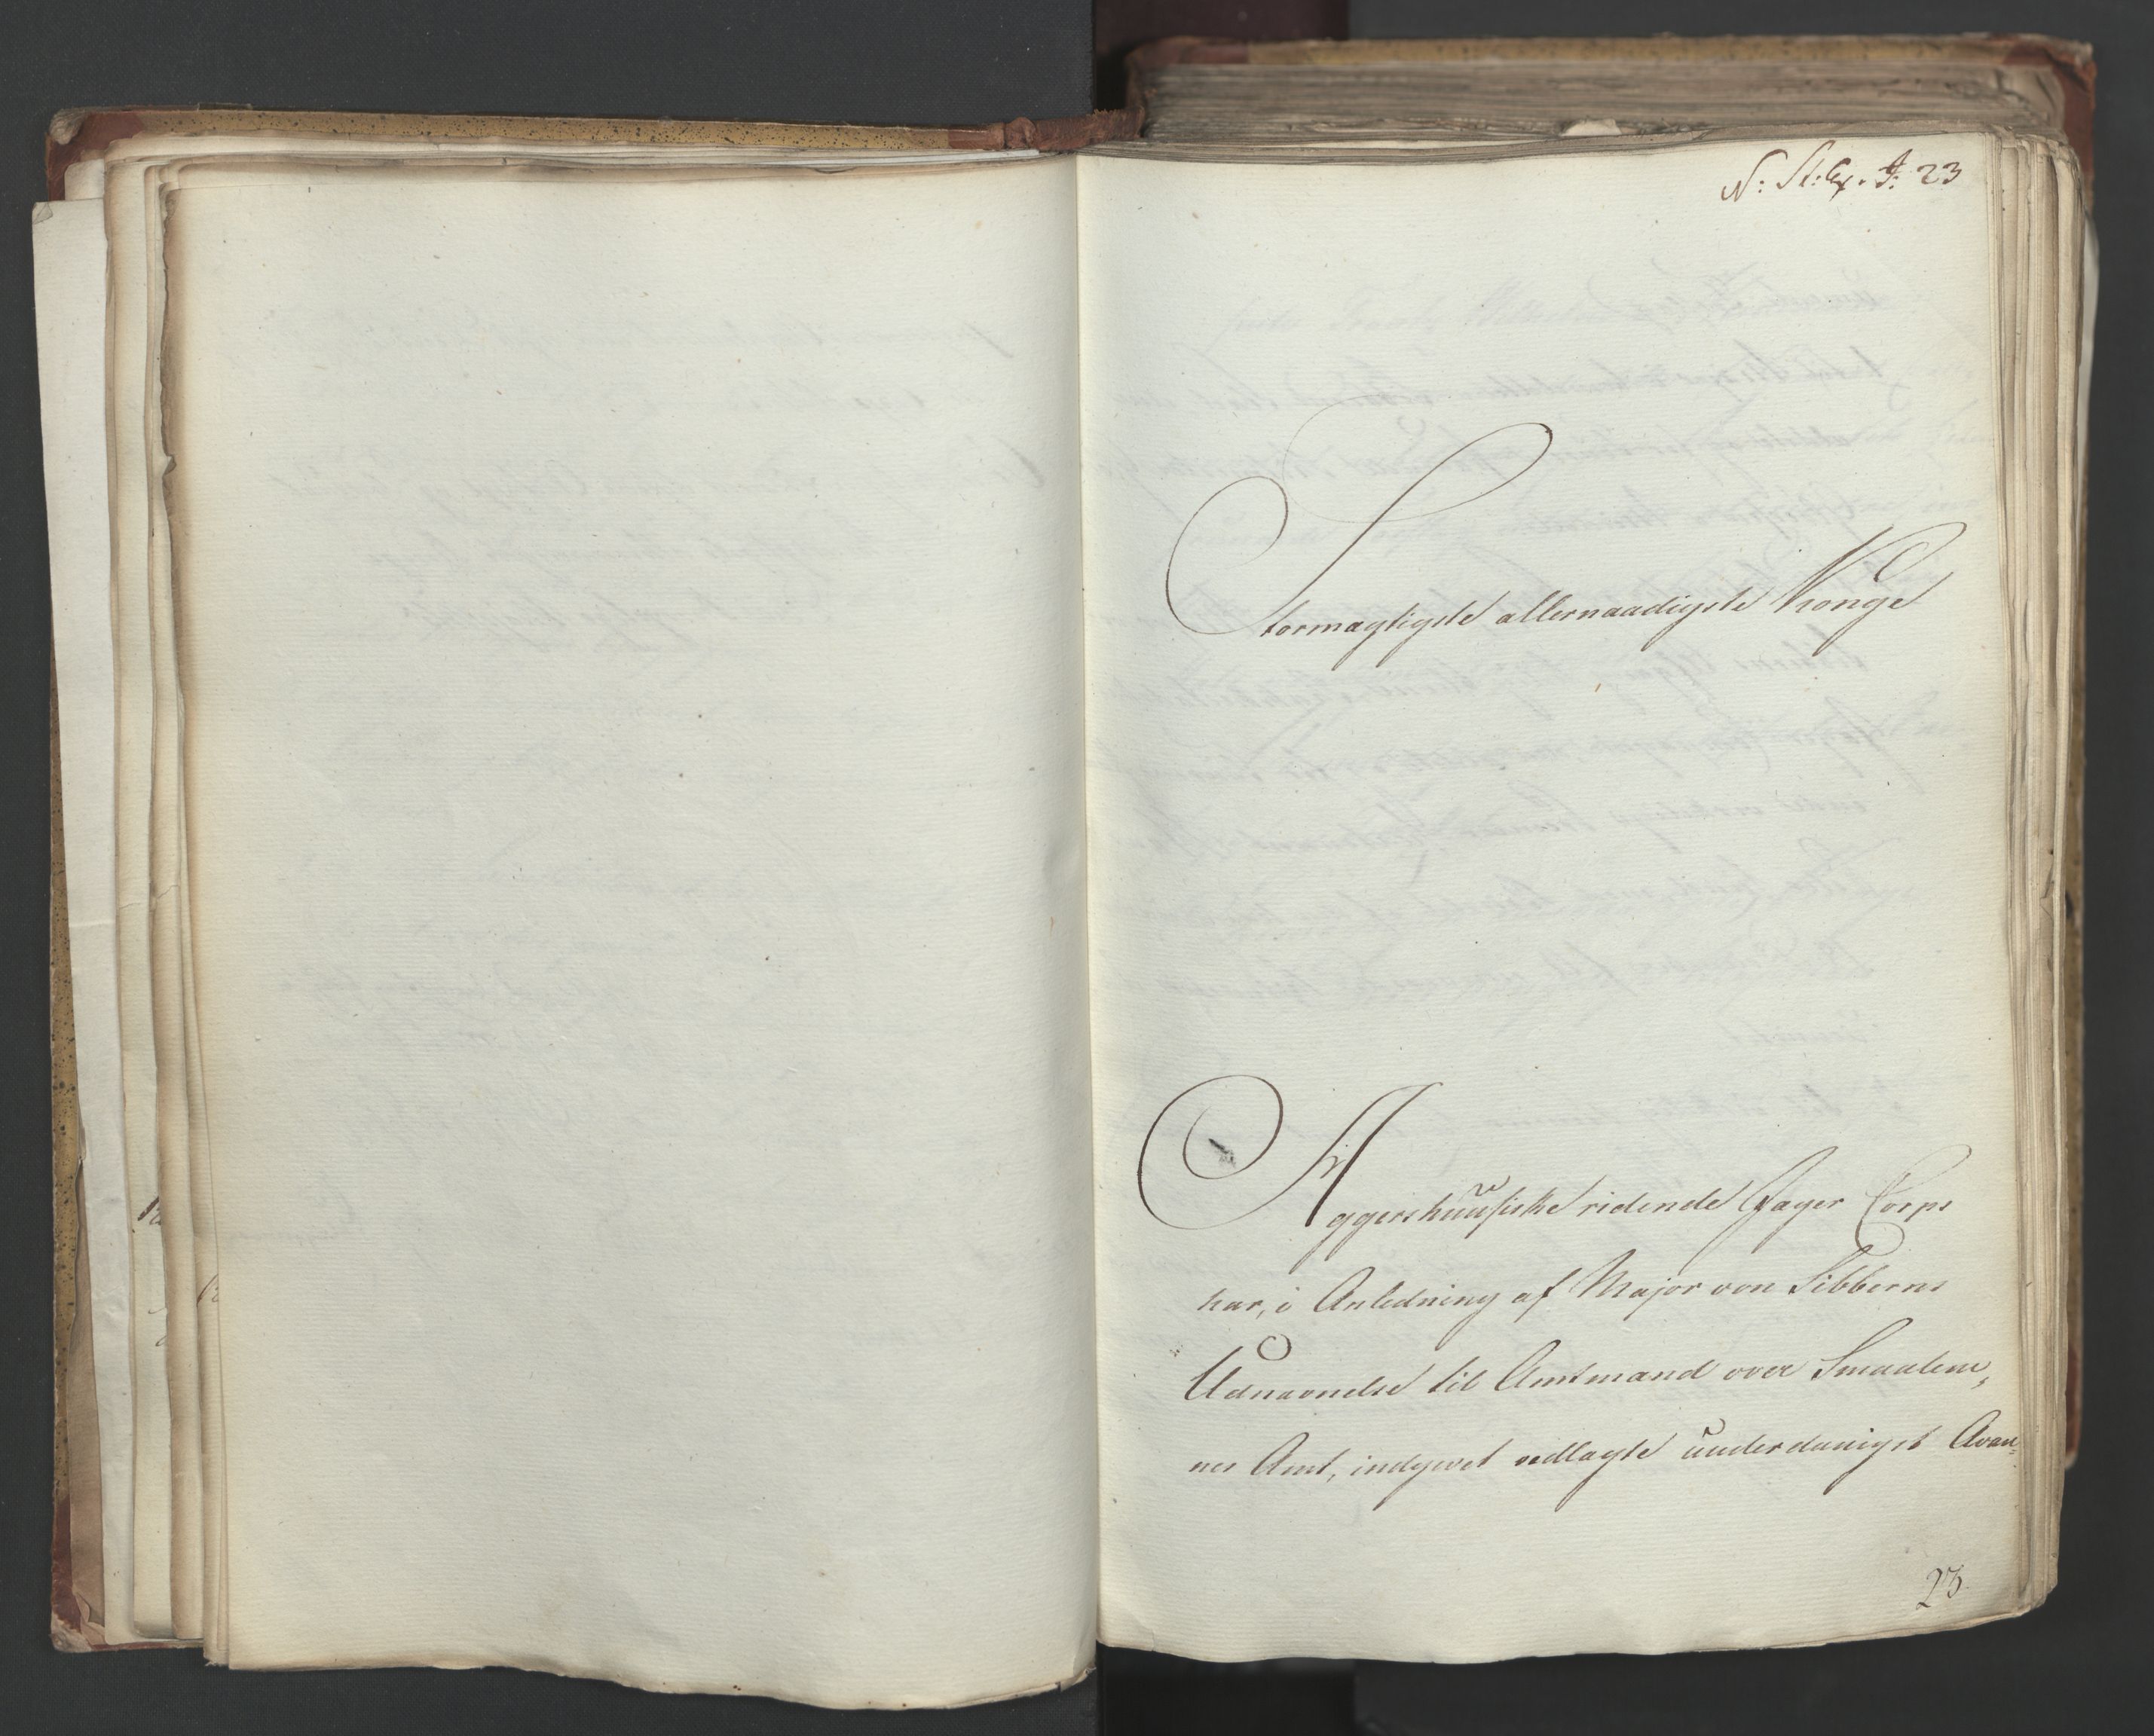 N: St: Ex. J: 23
Stormagtigste allernaadigste Konge
Aggershuusiske ridende Jæger Corps
har, i Anledning af Major von Sibberns
Udnævnelse til Amtmand over Smaalene,
nes Amt, indgivet vedlagte underdanigst Avan-
23